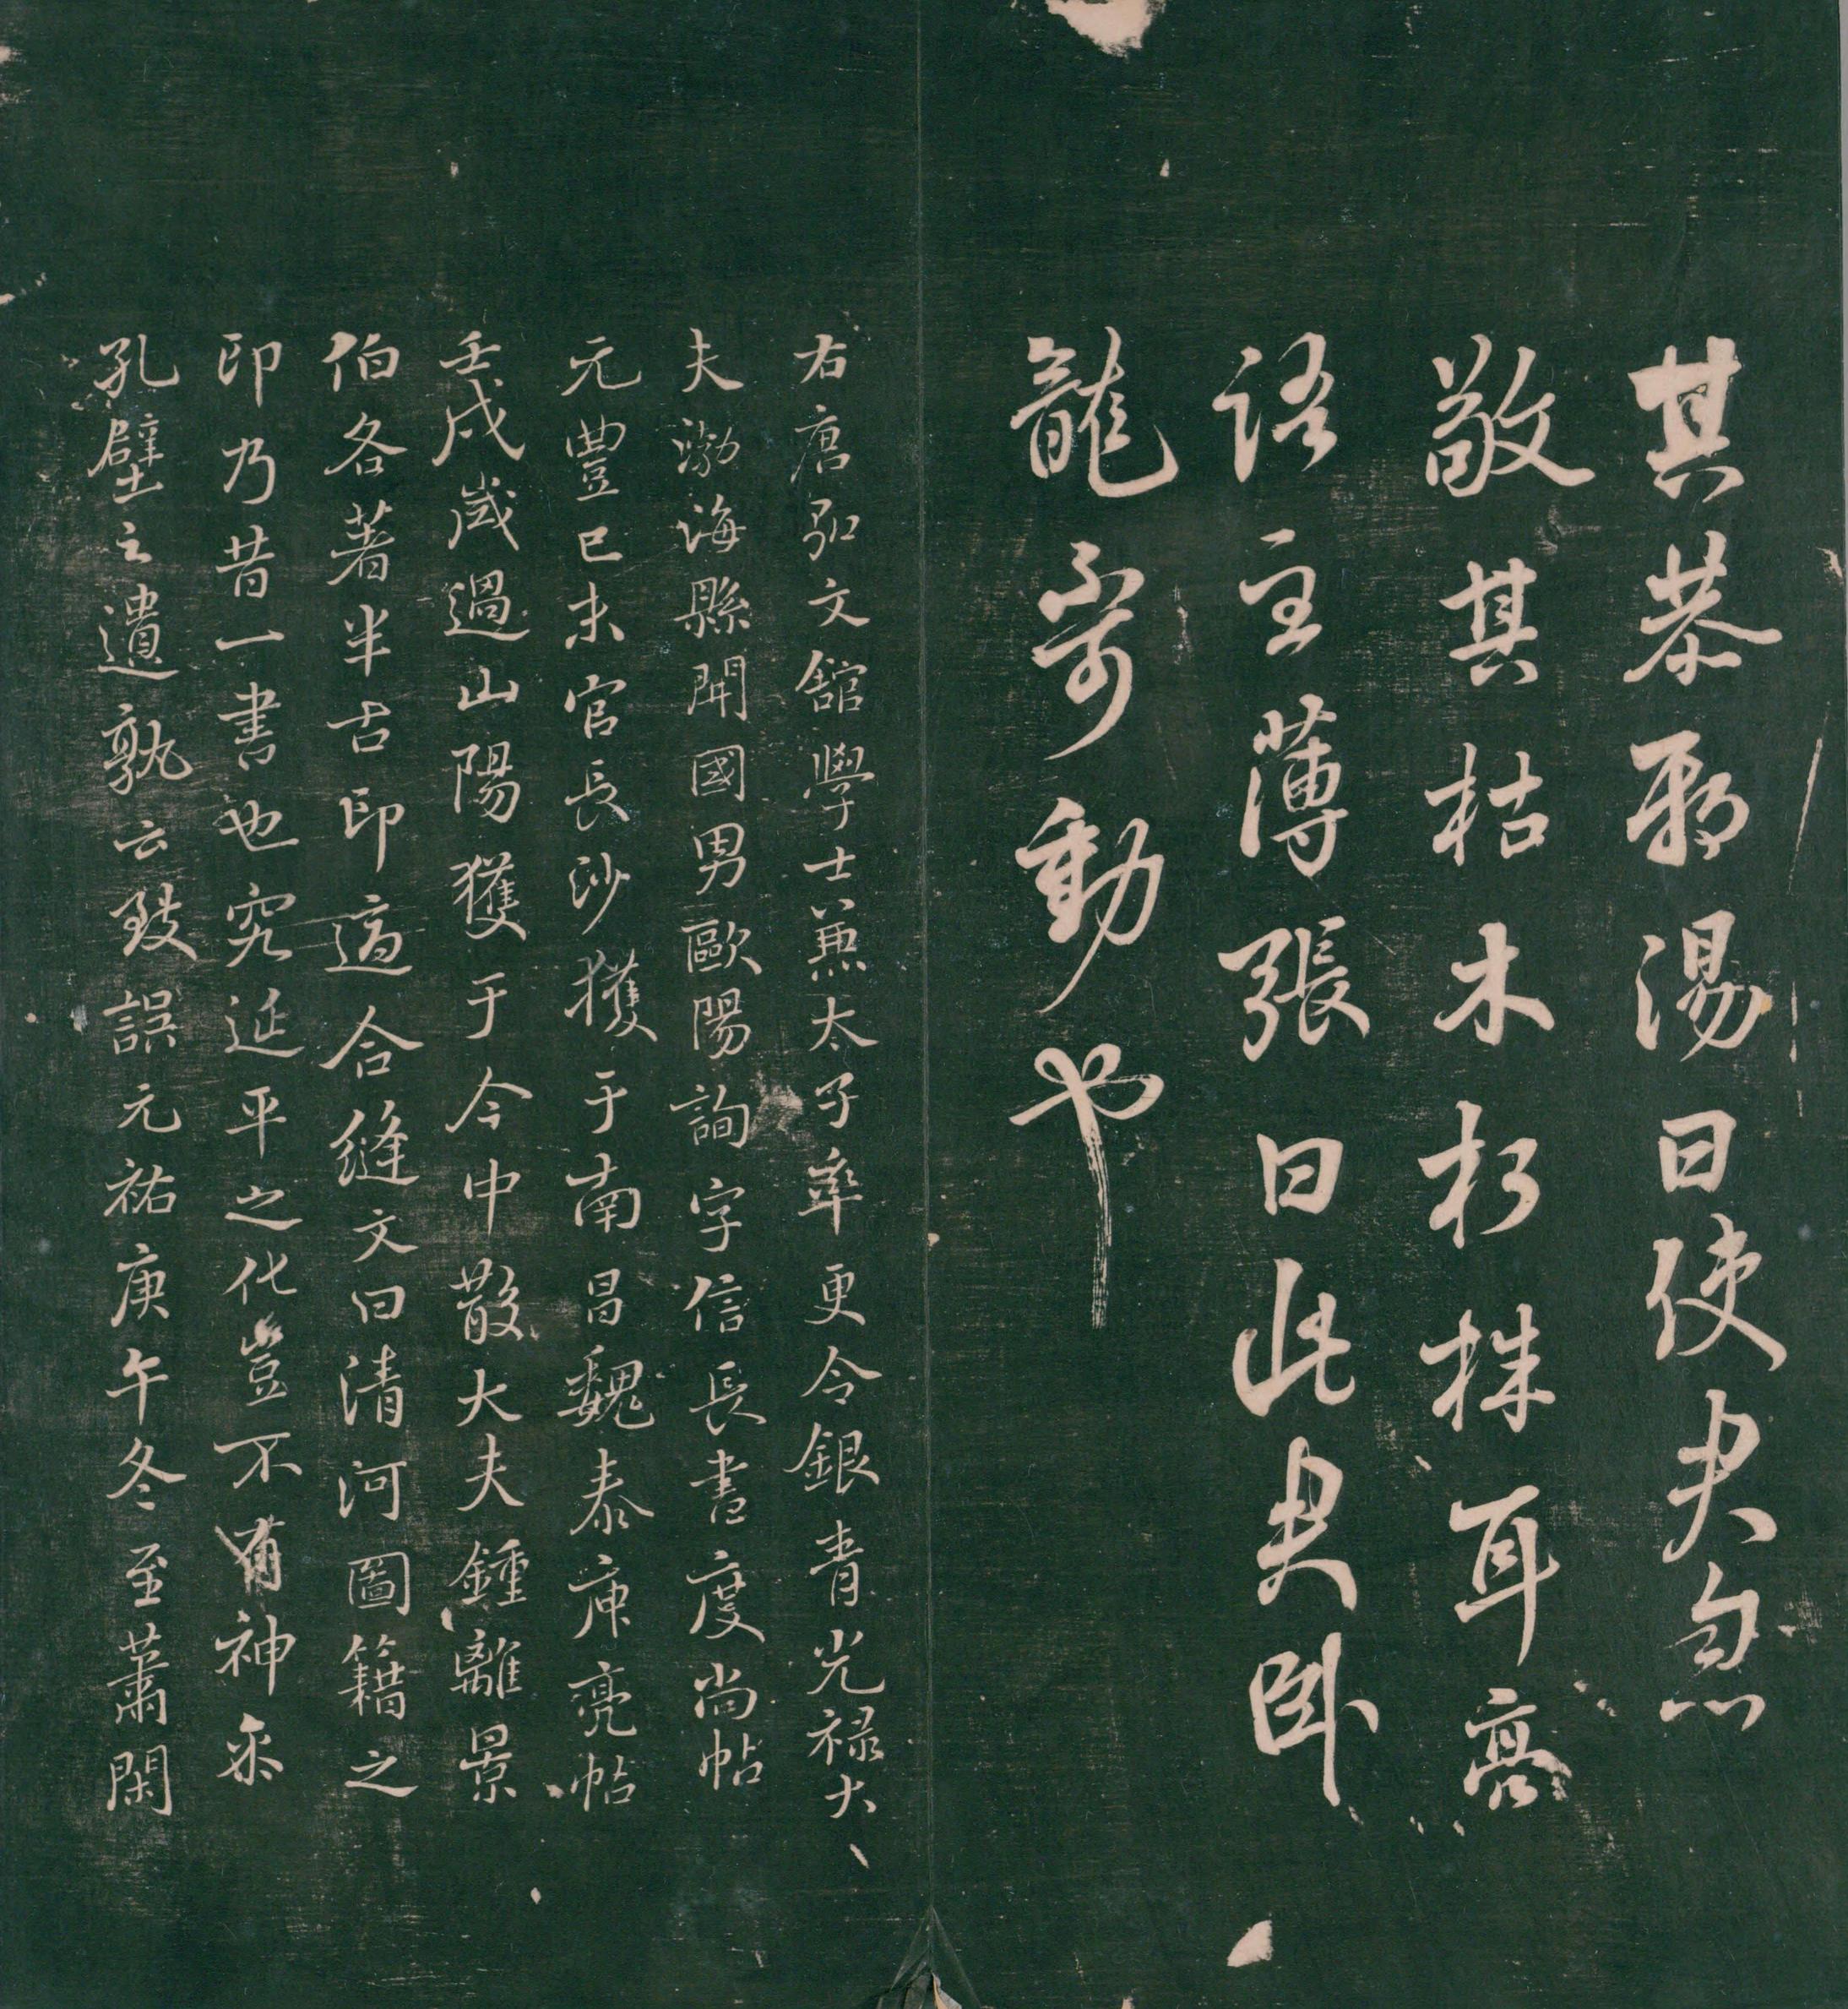 其恭耶湯曰使夫忽
敬其枯木朽株耳亮
語主薄張曰此夫卧
龍不可動也
右唐弘文館學士兼太子率更令銀青光禄大
夫渤海縣開國男歐陽詢字信長書度尚帖
元豐已未官長沙獲于南昌魏泰庾亮帖
壬戌歲過山陽獲于今中散大夫鍾離景
伯各著半古印適合縫文曰清河圖籍之
印乃昔一書也究延平之化豈不有神乎
孔壁之遺孰云致誤元祐庚午冬至蕭閑